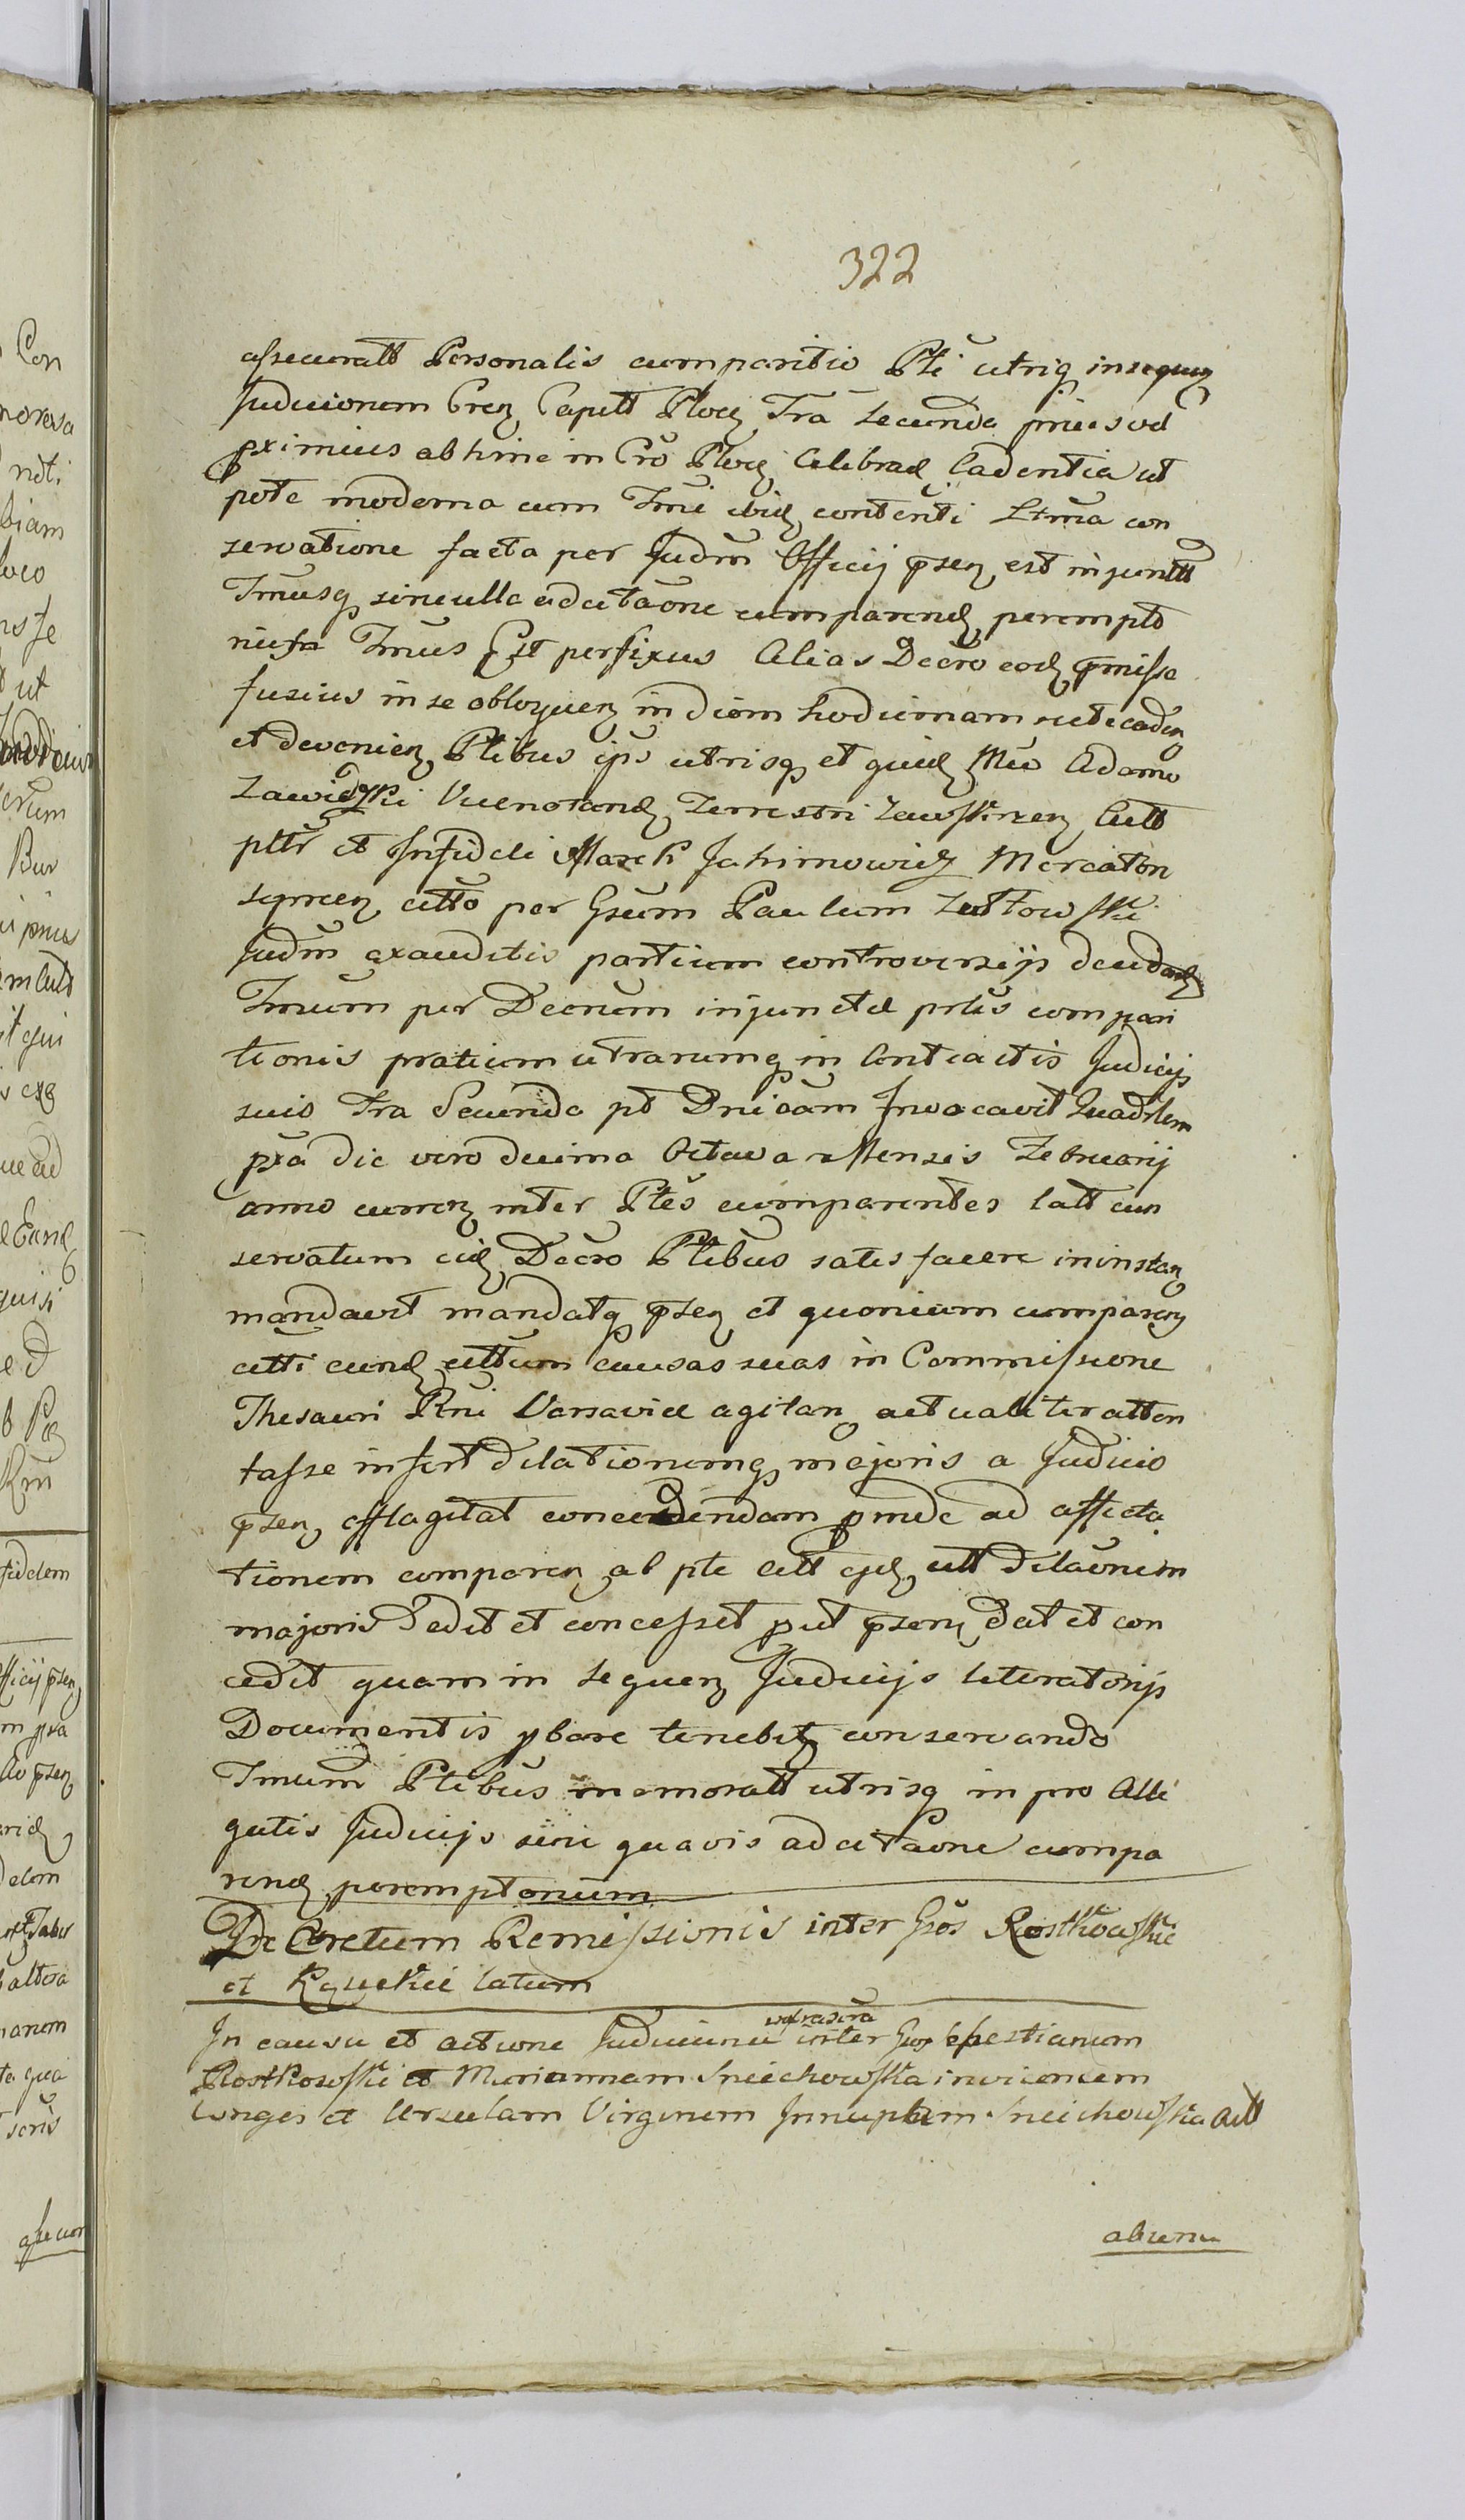 322
assecuratt Personalis comparitio Pti utriq insequen
Judiciorum Cren Capitt Ploc Fra Secunda prius vel
pximius abhinc in Cro Ploc Celebrad Cadentia ut
pote moderna cum Tmi ibid contenti
servatione facta per Judm Officij psen est injunctt
Tmusq sine ulla adcitaone comparend perempto
rius Tmus Est perfixus Alias Decro eod pmisse
fusius in se obloquen in diem hodiernam
et devenien Ptibus ips utrisq et quid Mco Adamo
Zawidzki Vuenatand Terrestri Zawskrzen Citt
pttr et Infideli Marek Jahimowicz Mercatori
Sepcen cttto per Gsum Paulum Zuttowski
Judm exauditis partium controversijs
Tmum per Decrum injunctæ prlis compari
tionis pratium utrarumq in Contiactis Judicijs
suis Fra Secunda pt Dnicam Invocavit Quadrlem
pxa die vero decima Octava Mensis Februarij
anno curren inter Ptes comparentes latt con
servatum eid Decro Ptibus satisfacere in instan
mandavit mandatq psen et quoniam comparen
citti eund cttum causas suas in Commissione
Thesauri Rni Varsaviæ agitan actualiter atten
tasse infert dilationemq majoris a Judicio
psen efflagitat concedendam pinde ad affecta
tionem comparen ab pte citt ejd citt dilaonem
majoris dedit et concessit put psen dat et con
cedit quam in sequen Judicijs literatorijs
Documentis pbare tenebit conservando
Tmum Ptibus memoratt utrisq in pro Alle
gatis Judicijs sine quavis adcitaone compa
rend peremptorium
Decretum Remissionis inter Gsos Rostkowskie
et latum
infrascra
In causa et actione Judiciaria inter Gsos Sebestianum
Rostkowski et Mariannam Sniechowska invicem
Conges et Ursulam Virginem Innuptam Sniechowska Act
abrenu